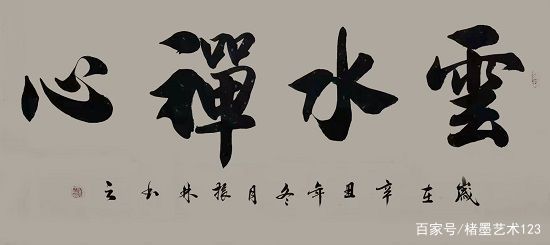 雲水禪心
歲在辛丑年冬月振林書之
百家号/楮墨艺术123